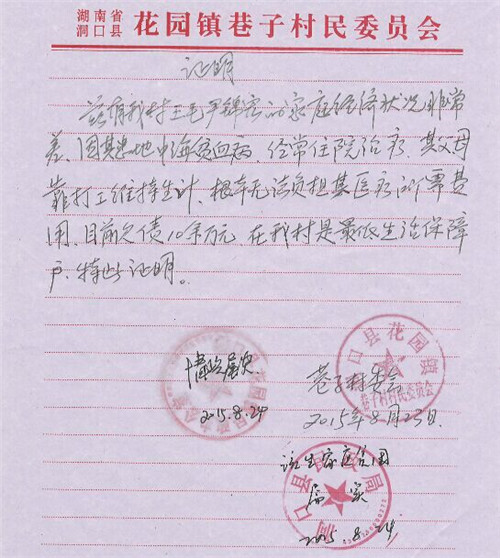 湖南省
洞口县
花园镇巷子村民委员会
证明
兹有我村王毛尹锦宏的家庭经济状况非常
差、因其患地中海贫血病、经常住院治疗、其父母
靠打工维持生计、根本无法负担其医疗所需费
用、目前欠债10余万元、在我村是最低生活保障
户、特此证明。
情况属实
2015.8.24
口县花园镇
巷子村委会
巷子村民委员会
2015年8月23日
该生家庭贫困
属实
2015.8.24